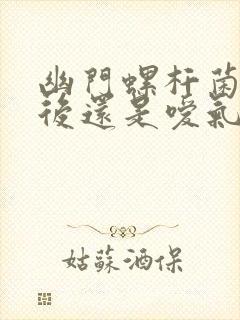 幽門螺杆菌
後還是噯氣
姑蘇酒保